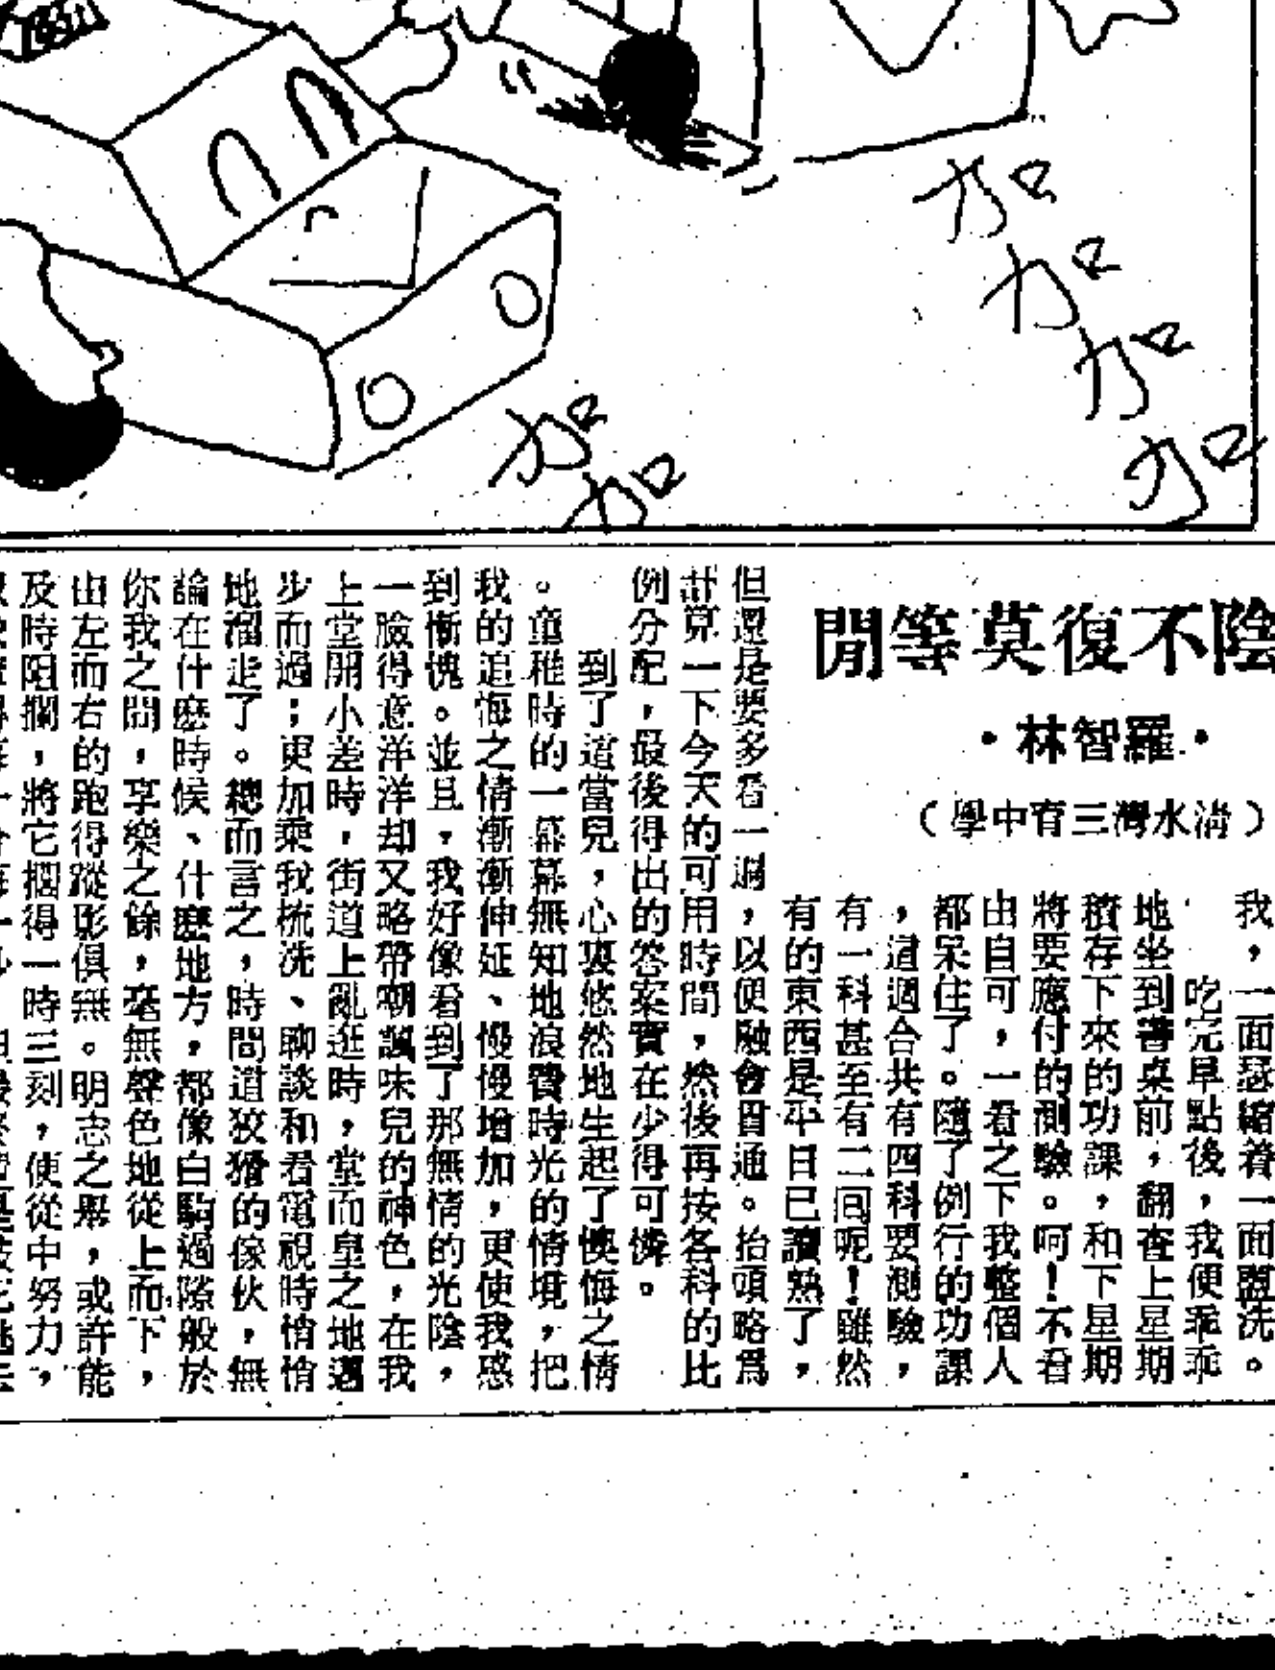 加
加
加
加
加
加
陰不復莫等閒
·羅智林·
（清水灣三育中學）
我，一面瑟縮着一面盥洗。
吃完早點後，我便乖乖
地坐到書桌前，翻查上星期
積存下來的功課，和下星期
將要應付的測驗。呵！不看
由自可，一看之下我整個人
都呆住了。隨了例行的功課
，這週合共有四科要測驗，
有一科甚至有二囘呢！雖然
有的東西是平日已讀熟了，
但還是要多看一遍，以便融會貫通。抬頭略爲
計算一下今天的可用時間，然後再按各科的比
例分配，最後得出的答案實在少得可憐。
到了這當兒，心裏悠然地生起了懊悔之情
。童稚時的一幕幕無知地浪費時光的情境，把
我的追悔之情漸漸伸延、慢慢增加，更使我感
到慚愧。並且，我好像看到了那無情的光陰，
一臉得意洋洋却又略帶嘲諷味兒的神色，在我
上堂開小差時，街道上亂逛時，堂而皇之地邁
步而過；更加乘我梳洗、聊談和看電視時悄悄
地溜走了。總而言之，時間道狡猾的傢伙，無
論在什麽時候、什麽地方，都像白駒過隙般於
你我之間，享樂之餘，毫無聲色地從上而下，
由左而右的跑得蹤影俱無。明志之舉，或許能
及時阻攔，將它摑得一時三刻，使從中努力，